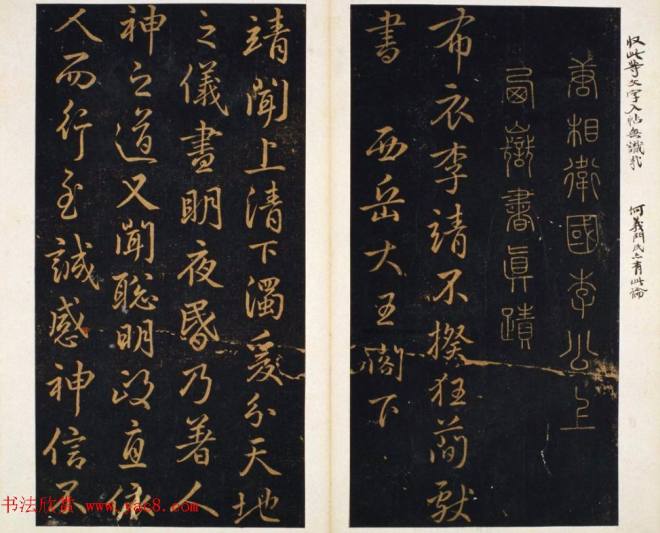 收此等文字入帖無識哉
何義門氏亦有此論
唐相衛國李公上
西嶽書真蹟
布衣李靖不揆狂簡獻
書 西岳大王閤下
靖聞上清下濁爰分天地
之儀晝明夜昏乃著人
神之道又聞聰明正直依
人而行至誠感神信不
书法欣赏 www.yac8.com